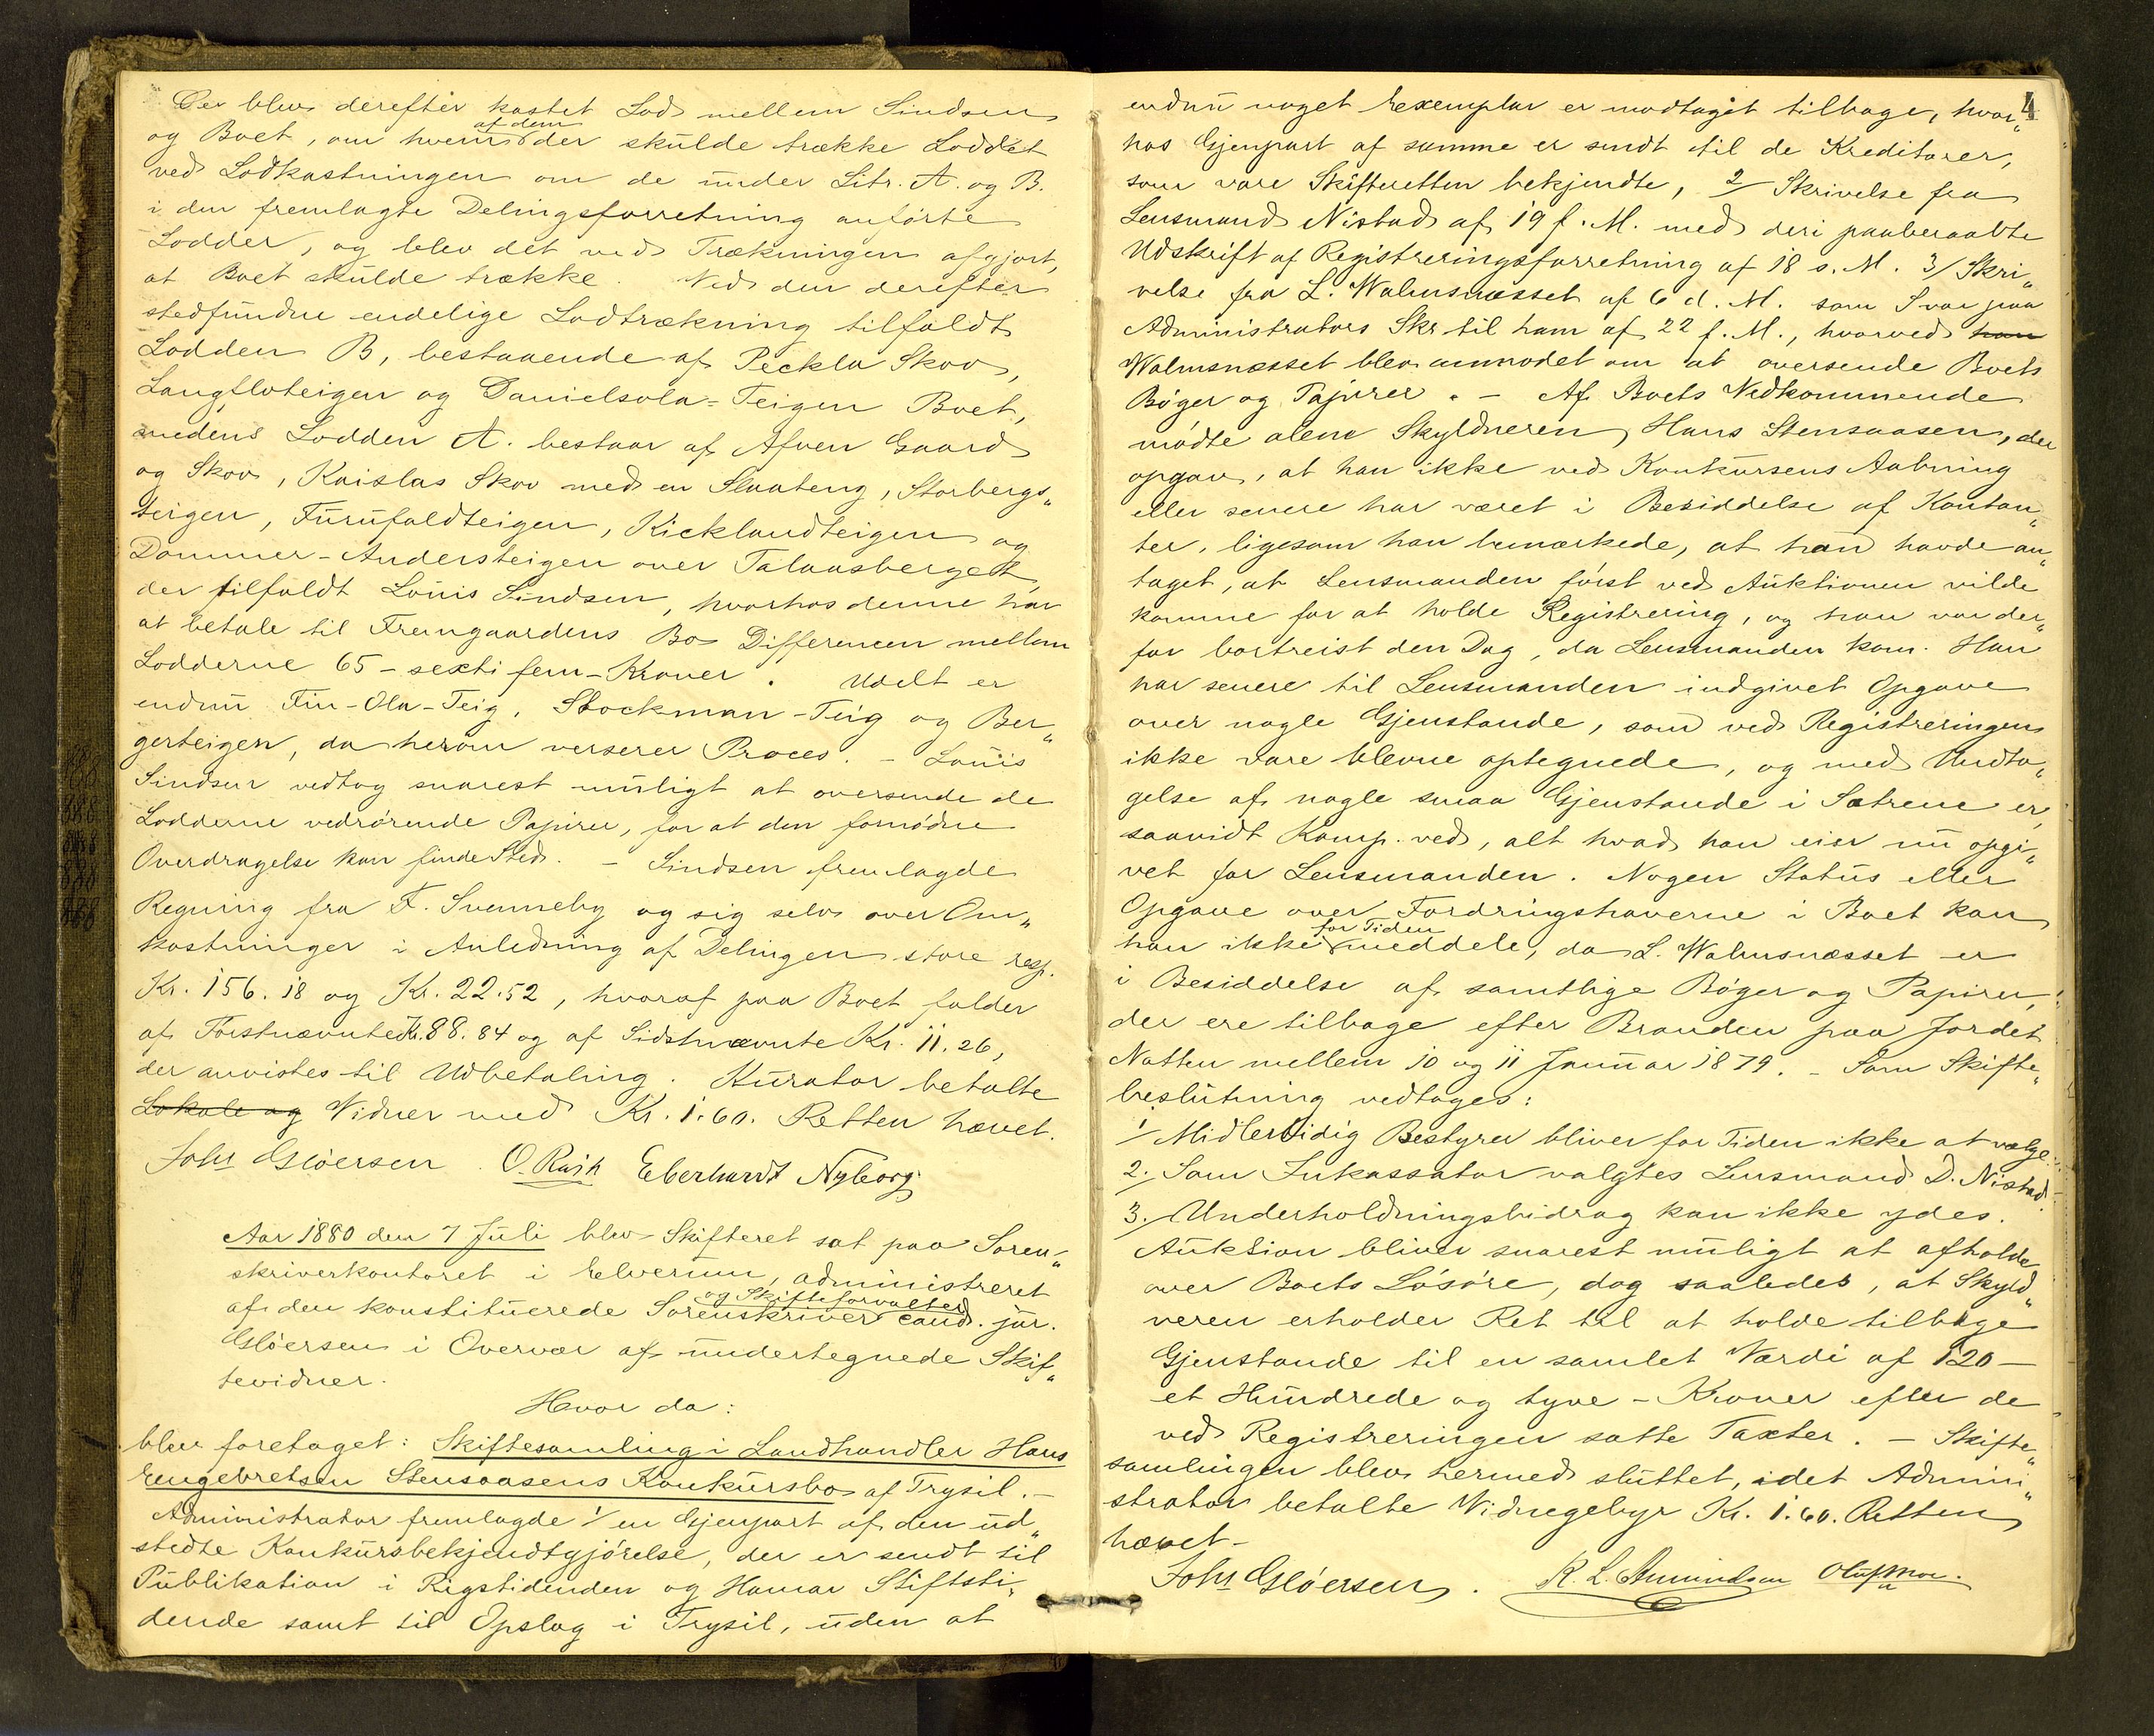 Der blev derefter kastet Lod mellem Sindsen
og Boet, om hvem af dem der skulde trække Loddet
ved Lodkastningen om de under Litr. A. og B.
i den fremlagte Delingsforretning anførte
Lodder, og blev det ved Trækningen afgjort,
at Boet skulde trække. Ved den derefter
stedfundne endelige Lodtrækning tilfaldt
Lodden B, bestaaende af Peckla Skov,
Langfloteigen og Danielsola-Teigen Boet,
medens Lodden A. bestaar af Afven Gaard
og Skov, Kaislas Skov med en Slaateng, Storbergs„
teigen, Furufaldteigen, Kicklandteigen og
Dommer-Andersteigen over Talaasberget,
der tilfaldt Louis Sindsen, hvorhos denne har
at betale til Fremgaardens Bo Differencen mellem
Lodderne 65 - sexti fem - Kroner. Udelt er
endnu Fin-Ola-Teig, Stockman-Teig og Ber„
gerteigen, da herom verserer Proces. - Louis
Sindsen vedtog snarest muligt at oversende de
Lodderne vedrørende Papirer, for at den fornødne
Overdragelse kan finde Sted. - Sindsen fremlagde
Regning fra F. Svenneby og sig selv over Om„
kostninger i Anledning af Delingen store resp.
Kr. 156.18 og Kr. 22.52, hvoraf paa Boet falder
af Førstnævnte Kr. 88.84 og af Sidstnævnte Kr. 11.26,
der anvistes til Udbetaling. Kurator betalte
Lokale og Vidner med Kr. 1.60. Retten hævet.
Johs Gløersen. O. Rask Eberhardt Nyborg
Aar 1880 den 7 Juli blev Skifteret sat paa Soren„
skriverkontoret i Elverum, administreret
af den konstituerede Sorenskriver og Skifteforvalter cand. jur.
Gløersen i Overvær af undertegnede Skif„
tevidner.
Hvor da:
blev foretaget: Skiftesamling i Landhandler Hans
Engebretsen Stensaasens Konkursbo af Trysil. -
Administrator fremlagde 1/ en Gjenpart af den ud„
stedte Konkursbekjendtgjørelse, der er sendt til
Publikation i Rigstidenden og Hamar Stiftsti„
dende samt til Opslag i Trysil, uden at
4
endnu noget Exemplar er modtaget tilbage, hvor„
hos Gjenpart af samme er sendt til de Kreditorer,
som vare Skifteretten bekjendte, 2/ Skrivelse fra
Lensmand Nistad af 19 f. M. med deri paaberaabte
Udskrift af Registreringsforretning af 18 s. M. 3/ Skri„
velse fra L. Walmsnæsset af 6 d. M. som Svar paa
Administrators Skr. til ham af 22 f. M., hvorved han
Walmsnæsset blev anmodet om at oversende Boets
Bøger og Papirer. - Af Boets Vedkommende
mødte alene Skyldneren, Hans Stensaasen, der
opgav, at han ikke ved Konkursens Aabning
eller senere har været i Besiddelse af Kontan„
ter, ligesom han bemærkede, at han havde an„
taget, at Lensmanden først ved Auktionen vilde
komme for at holde Registrering, og han var der„
for bortreist den Dag, da Lensmanden kom. Han
har senere til Lensmanden indgivet Opgave
over nogle Gjenstande, som ved Registreringen
ikke vare blevne optegnede, og med Undta„
gelse af nogle smaa Gjenstande i Sætrene er,
saavidt Komp. ved, alt hvad han eier nu opgi„
vet for Lensmanden. Nogen Status eller
Opgave over Fordringshaverne i Boet kan
han ikke for Tiden meddele, da L. Walmsnæsset er
i Besiddelse af samtlige Bøger og Papirer,
der ere tilbage efter Branden paa Jordet
Natten mellem 10 og 11 Januar 1879. - Som Skifte„
beslutning vedtoges:
1/ Midlertidig Bestyrer bliver for Tiden ikke at vælge.
2/ Som Inkassator valgtes Lensmand D. Nistad.
3/ Underholdningsbidrag kan ikke ydes.
Auktion bliver snarest muligt at afholde
over Boets Løsøre, dog saaledes, at Skyld„
neren erholder Ret til at holde tilbage
Gjenstande til en samlet Værdi af 120 -
et Hundrede og tyve - Kroner efter de
ved Registreringen satte Taxter. - Skifte„
samlingen blev hermed sluttet, idet Admini„
strator betalte Vidnegebyr Kr. 1.60. Retten
hævet -
Johs Gløersen. K. L. Amundsen Oluf Moe.